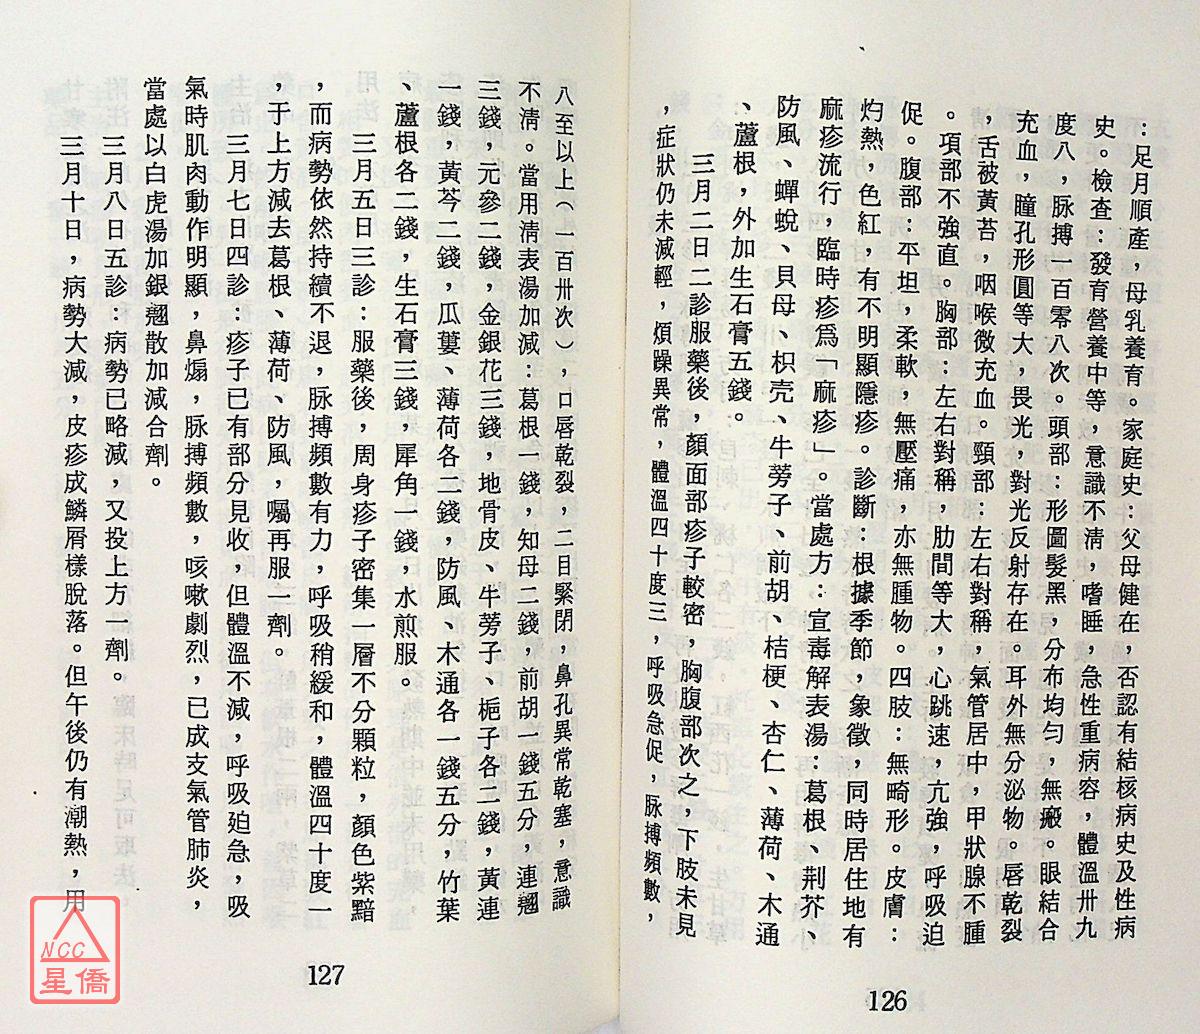 ：足月順產，母乳養育。家庭史：父母健在，否認有結核病史及性病
史。檢查：發育營養中等，意識不清，嗜睡，急性重病容，體溫卅九
度八，脉搏一百零八次。頭部：形圖髮黑，分布均勻，無瘢。眼結合
充血，瞳孔形圓等大，畏光，對光反射存在。耳外無分泌物。唇乾裂
，舌被黃苔，咽喉微充血。頸部：左右對稱，氣管居中，甲狀腺不腫
。項部不強直。胸部：左右對稱，肋間等大，心跳速，亢強，呼吸迫
促。腹部：平坦，柔軟，無壓痛，亦無腫物。四肢：無畸形。皮膚：
灼熱，色紅，有不明顯隱疹。診斷：根據季節，象徵，同時居住地有
麻疹流行，臨時疹爲「麻疹」。當處方：宣毒解表湯：葛根、荆芥、
防風、蟬蛻、貝母、枳壳、牛蒡子、前胡、桔梗、杏仁、薄荷、木通
、蘆根，外加生石膏五錢。
三月二日二診服藥後，顏面部疹子較密，胸腹部次之，下肢未見
，症狀仍未減輕，煩躁異常，體溫四十度三，呼吸急促，脉搏頻數，
126
八至以上（一百卅次），口唇乾裂，二目緊閉，鼻孔異常乾塞，意識
不清。當用清表湯加減：葛根一錢，知母二錢，前胡一錢五分，連翹
三錢，元參二錢，金銀花三錢，地骨皮、牛蒡子、梔子各二錢，黃連
一錢，黃芩二錢，瓜蔞、薄荷各二錢，防風、木通各一錢五分，竹葉
、蘆根各二錢，生石膏三錢，犀角一錢，水煎服。
三月五日三診：服藥後，周身疹子密集一層不分顆粒，顏色紫黯
，而病勢依然持續不退，脉搏頻數有力，呼吸稍緩和，體溫四十度一
，于上方減去葛根、薄荷、防風，囑再服一劑。
三月七日四診：疹子已有部分見收，但體溫不減，呼吸廹急，吸
氣時肌肉動作明顯，鼻煽，脉搏頻數，咳嗽劇烈，已成支氣管肺炎，
當處以白虎湯加銀翹散加減合劑。
三月八日五診：病勢已略減，又投上方一劑。
三月十日，病勢大減，皮疹成鱗屑樣脫落。但午後仍有潮熱，用
127
NCC
星僑